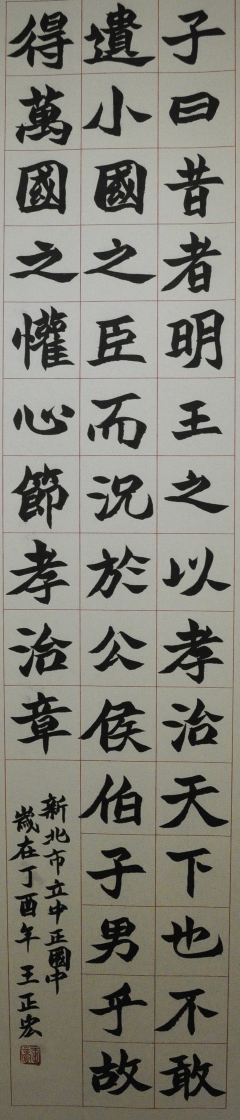 子曰昔者明王之以孝治天下也不敢
遺小國之臣而況於公侯伯子男乎故
得萬國之懽心節孝治章
新北市立中正國中
歲在丁酉年王正宏